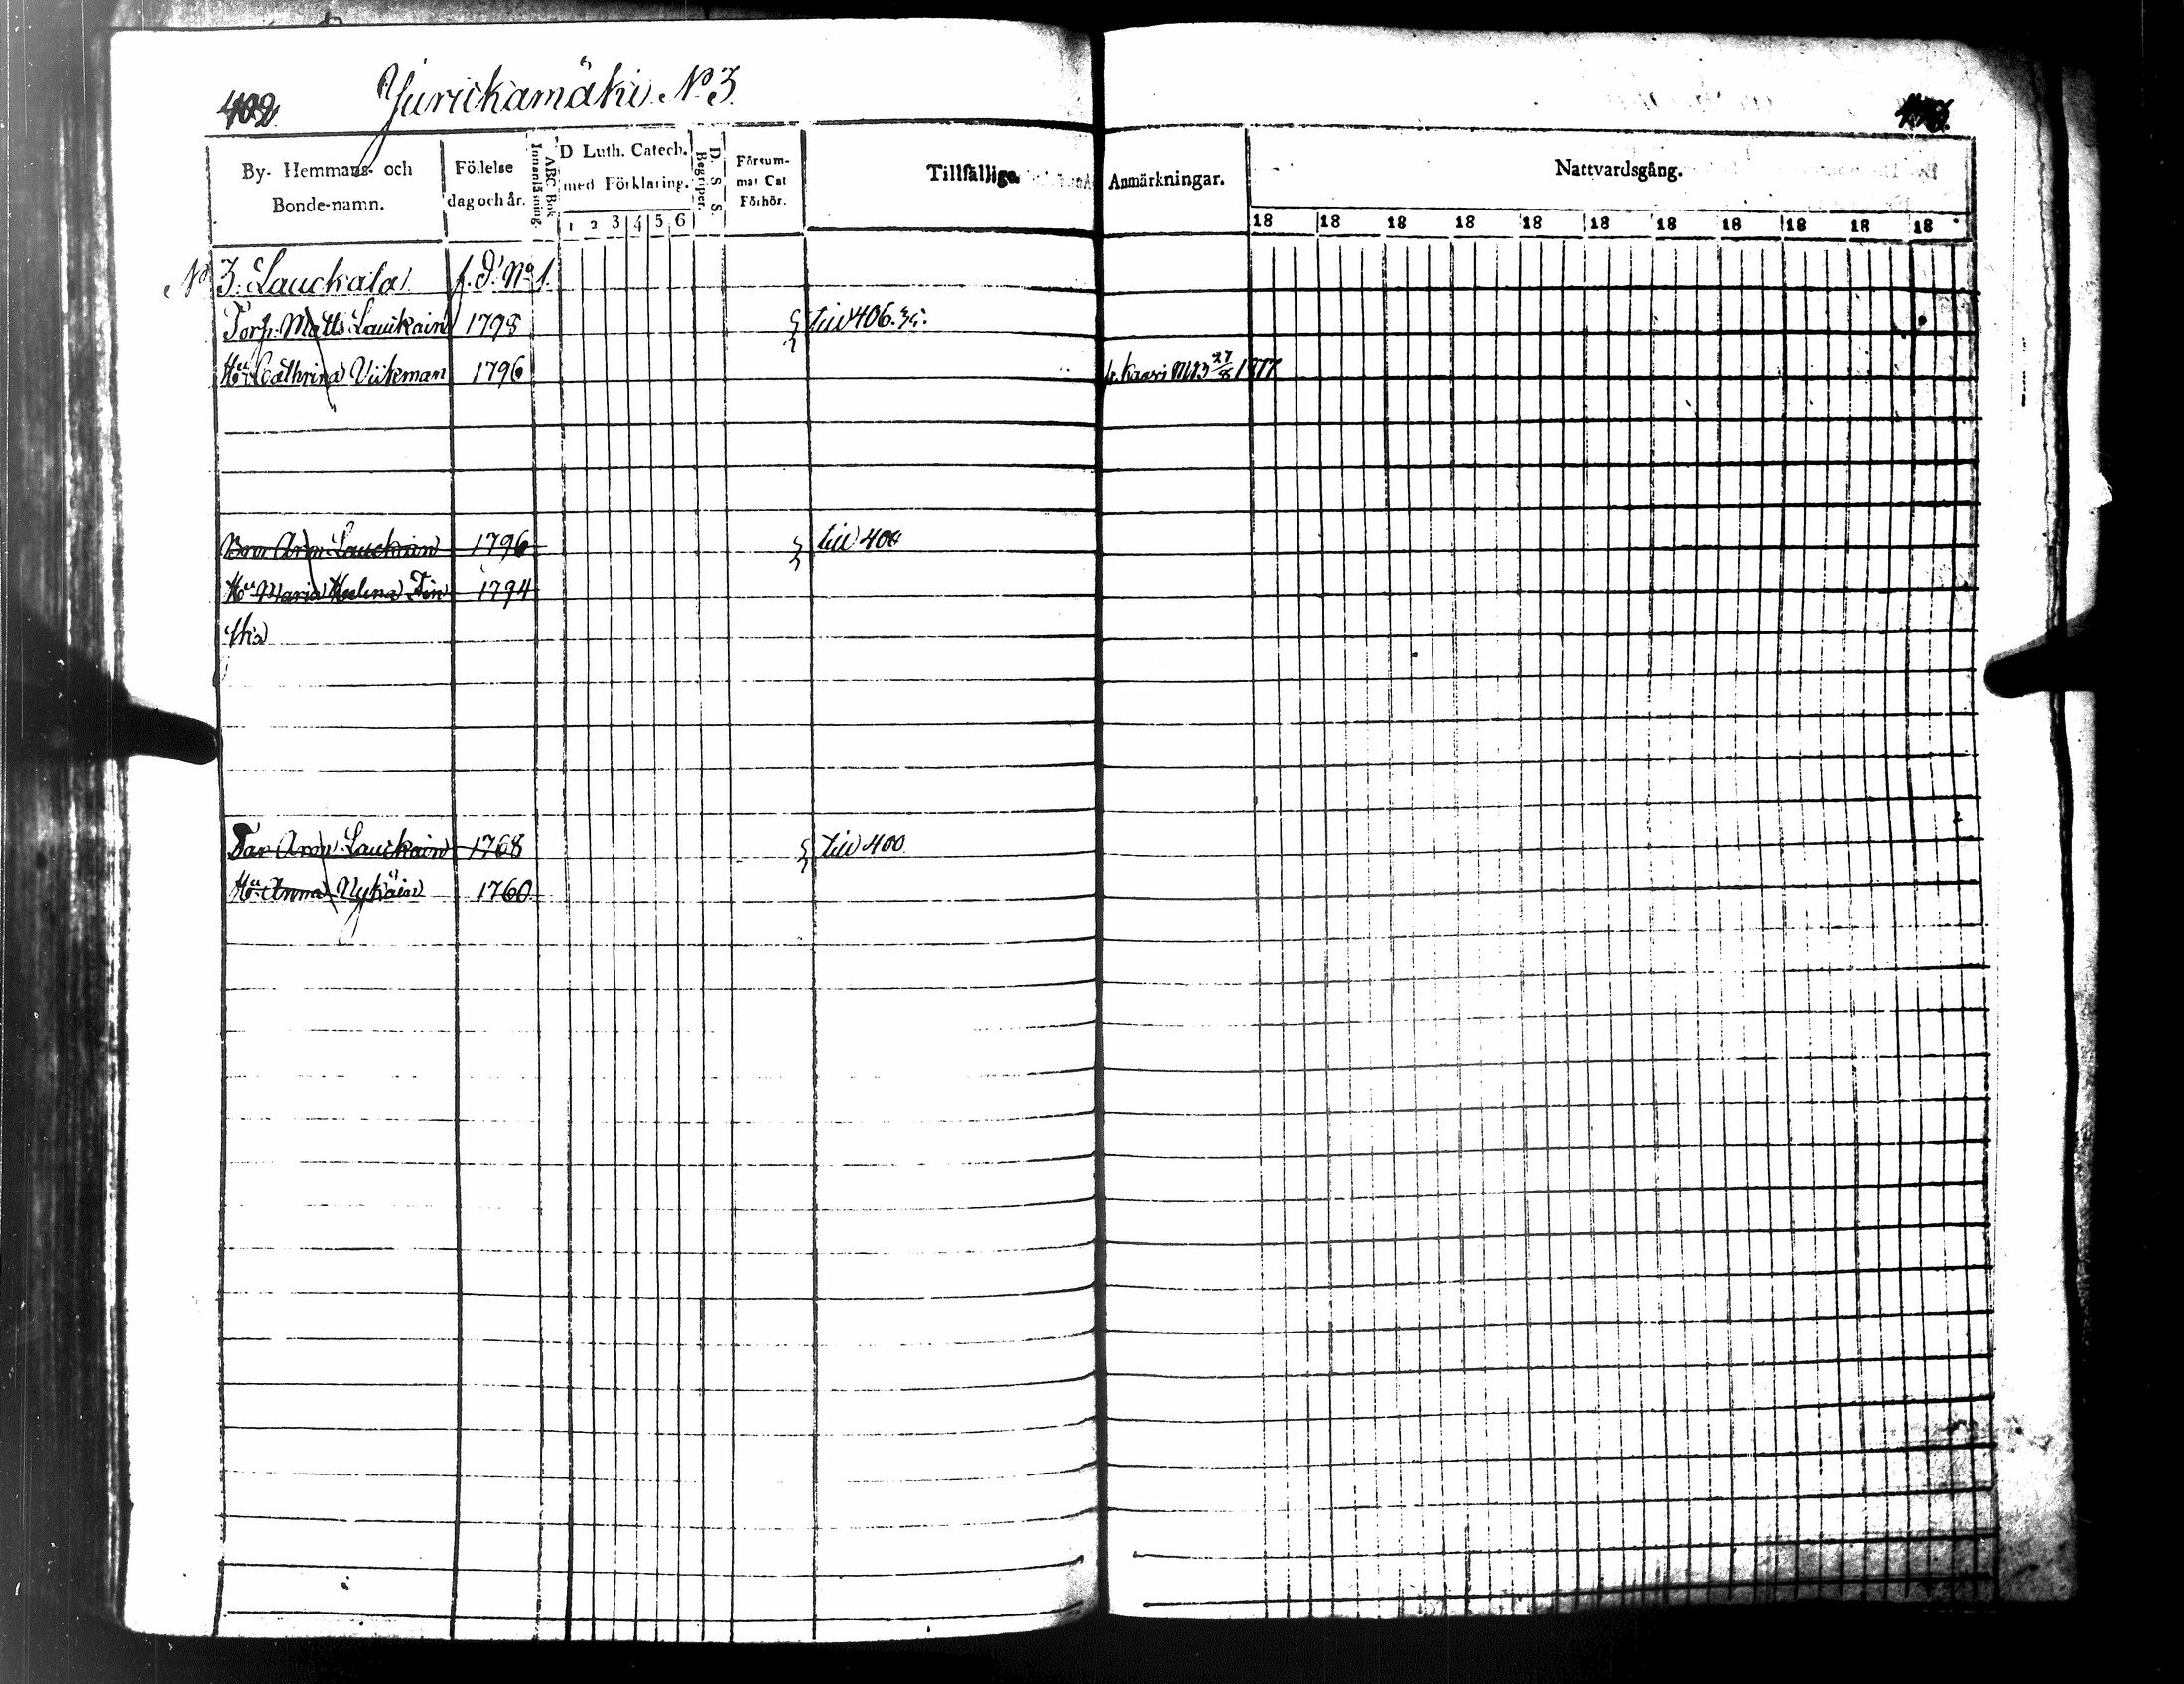 402 Juruckamäki N:o 3.
By- Hemmans- och Bonde-namn.
Födelse dag och år.
ABC Bok Innanläsning.
D Luth. Catech. med Förklaring.
1 2 3 4 5 6
D. S. S. Begriper.
Försummat Cat Förhör.
Tillfällige Anmärkningar.
Nattvardsgång.
18 18 18 18 18 18 18 18 18 18 18
No 3. Lauckala f. d. No 1.
Torp. Matts Lauckain 1798 till 406.
Hu Cathrina Viikman 1796 Kaavi 27/8 1877
Aron Lauckain 1796 till 400
Hu Maria Helena 1794
Far Aron Lauckain 1768 till 400
Hu Anna Nykäin 1760